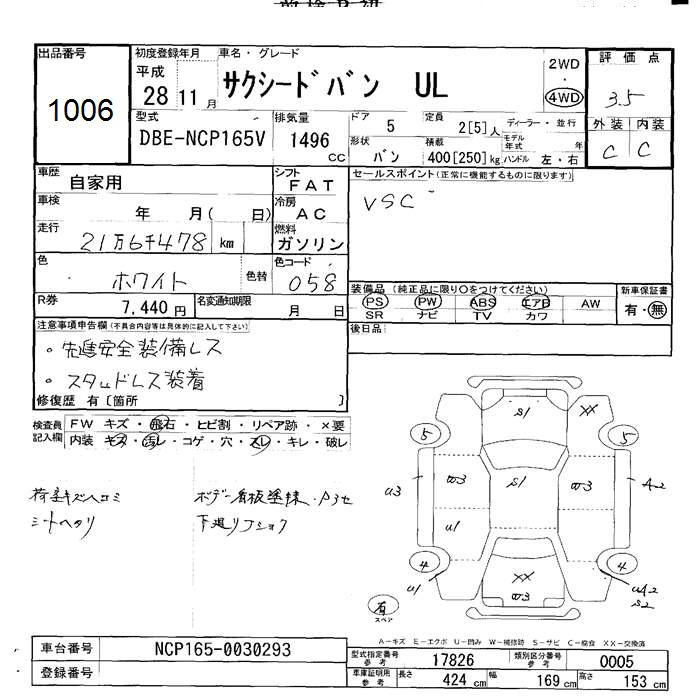 出品番号
1006
初度登録年月
平成
28 11 月
車名・グレード
サクシードバン UL
2WD
4WD
評価点
3.5
外装 内装
C C
型式
DBE-NCP165V
排気量
1496
cc
ドア
5
定員
2[5]人
ディーラー・並行
形状
バン
積載
400[250]kg
モデル年式 年
ハンドル 左・右
車歴
自家用
シフト
FAT
車検
年 月( 日)
冷房
AC
走行
21万6千478 km
燃料
ガソリン
色
ホワイト
色替
色コード
058
R券
7,440円
名変通知期限
月 日
セールスポイント(正常に機能するものに限ります)
VSC
装備品 (純正品に限り○をつけてください)
PS PW ABS エアB AW
SR ナビ TV カワ
新車保証書
有・無
後日品
注意事項申告欄(不具合内容等は具体的に記入して下さい)
・先進安全装備レス
・スタッドレス装着
修復歴 有〔箇所 〕
検査員記入欄
FW キズ・飛石・ヒビ割・リペア跡・×要
内装 キズ・汚レ・コゲ・穴・スレ・キレ・破レ
荷室キズヘコミ
シートヘタリ
ボデー看板塗様・P3セ
下廻りフショク
S1 XX
5 5
U3 W3 S1 W3 A2
U1
4 4
U1 XX W3 U2 S2
有
スペア
A-キズ E-エクボ U-凹み W-補修跡 S-サビ C-腐食 XX-交換済
車台番号
NCP165-0030293
登録番号
型式指定番号 参考
17826
類別区分番号 参考
0005
車庫証明用 参考
長さ 424 cm
幅 169 cm
高さ 153 cm